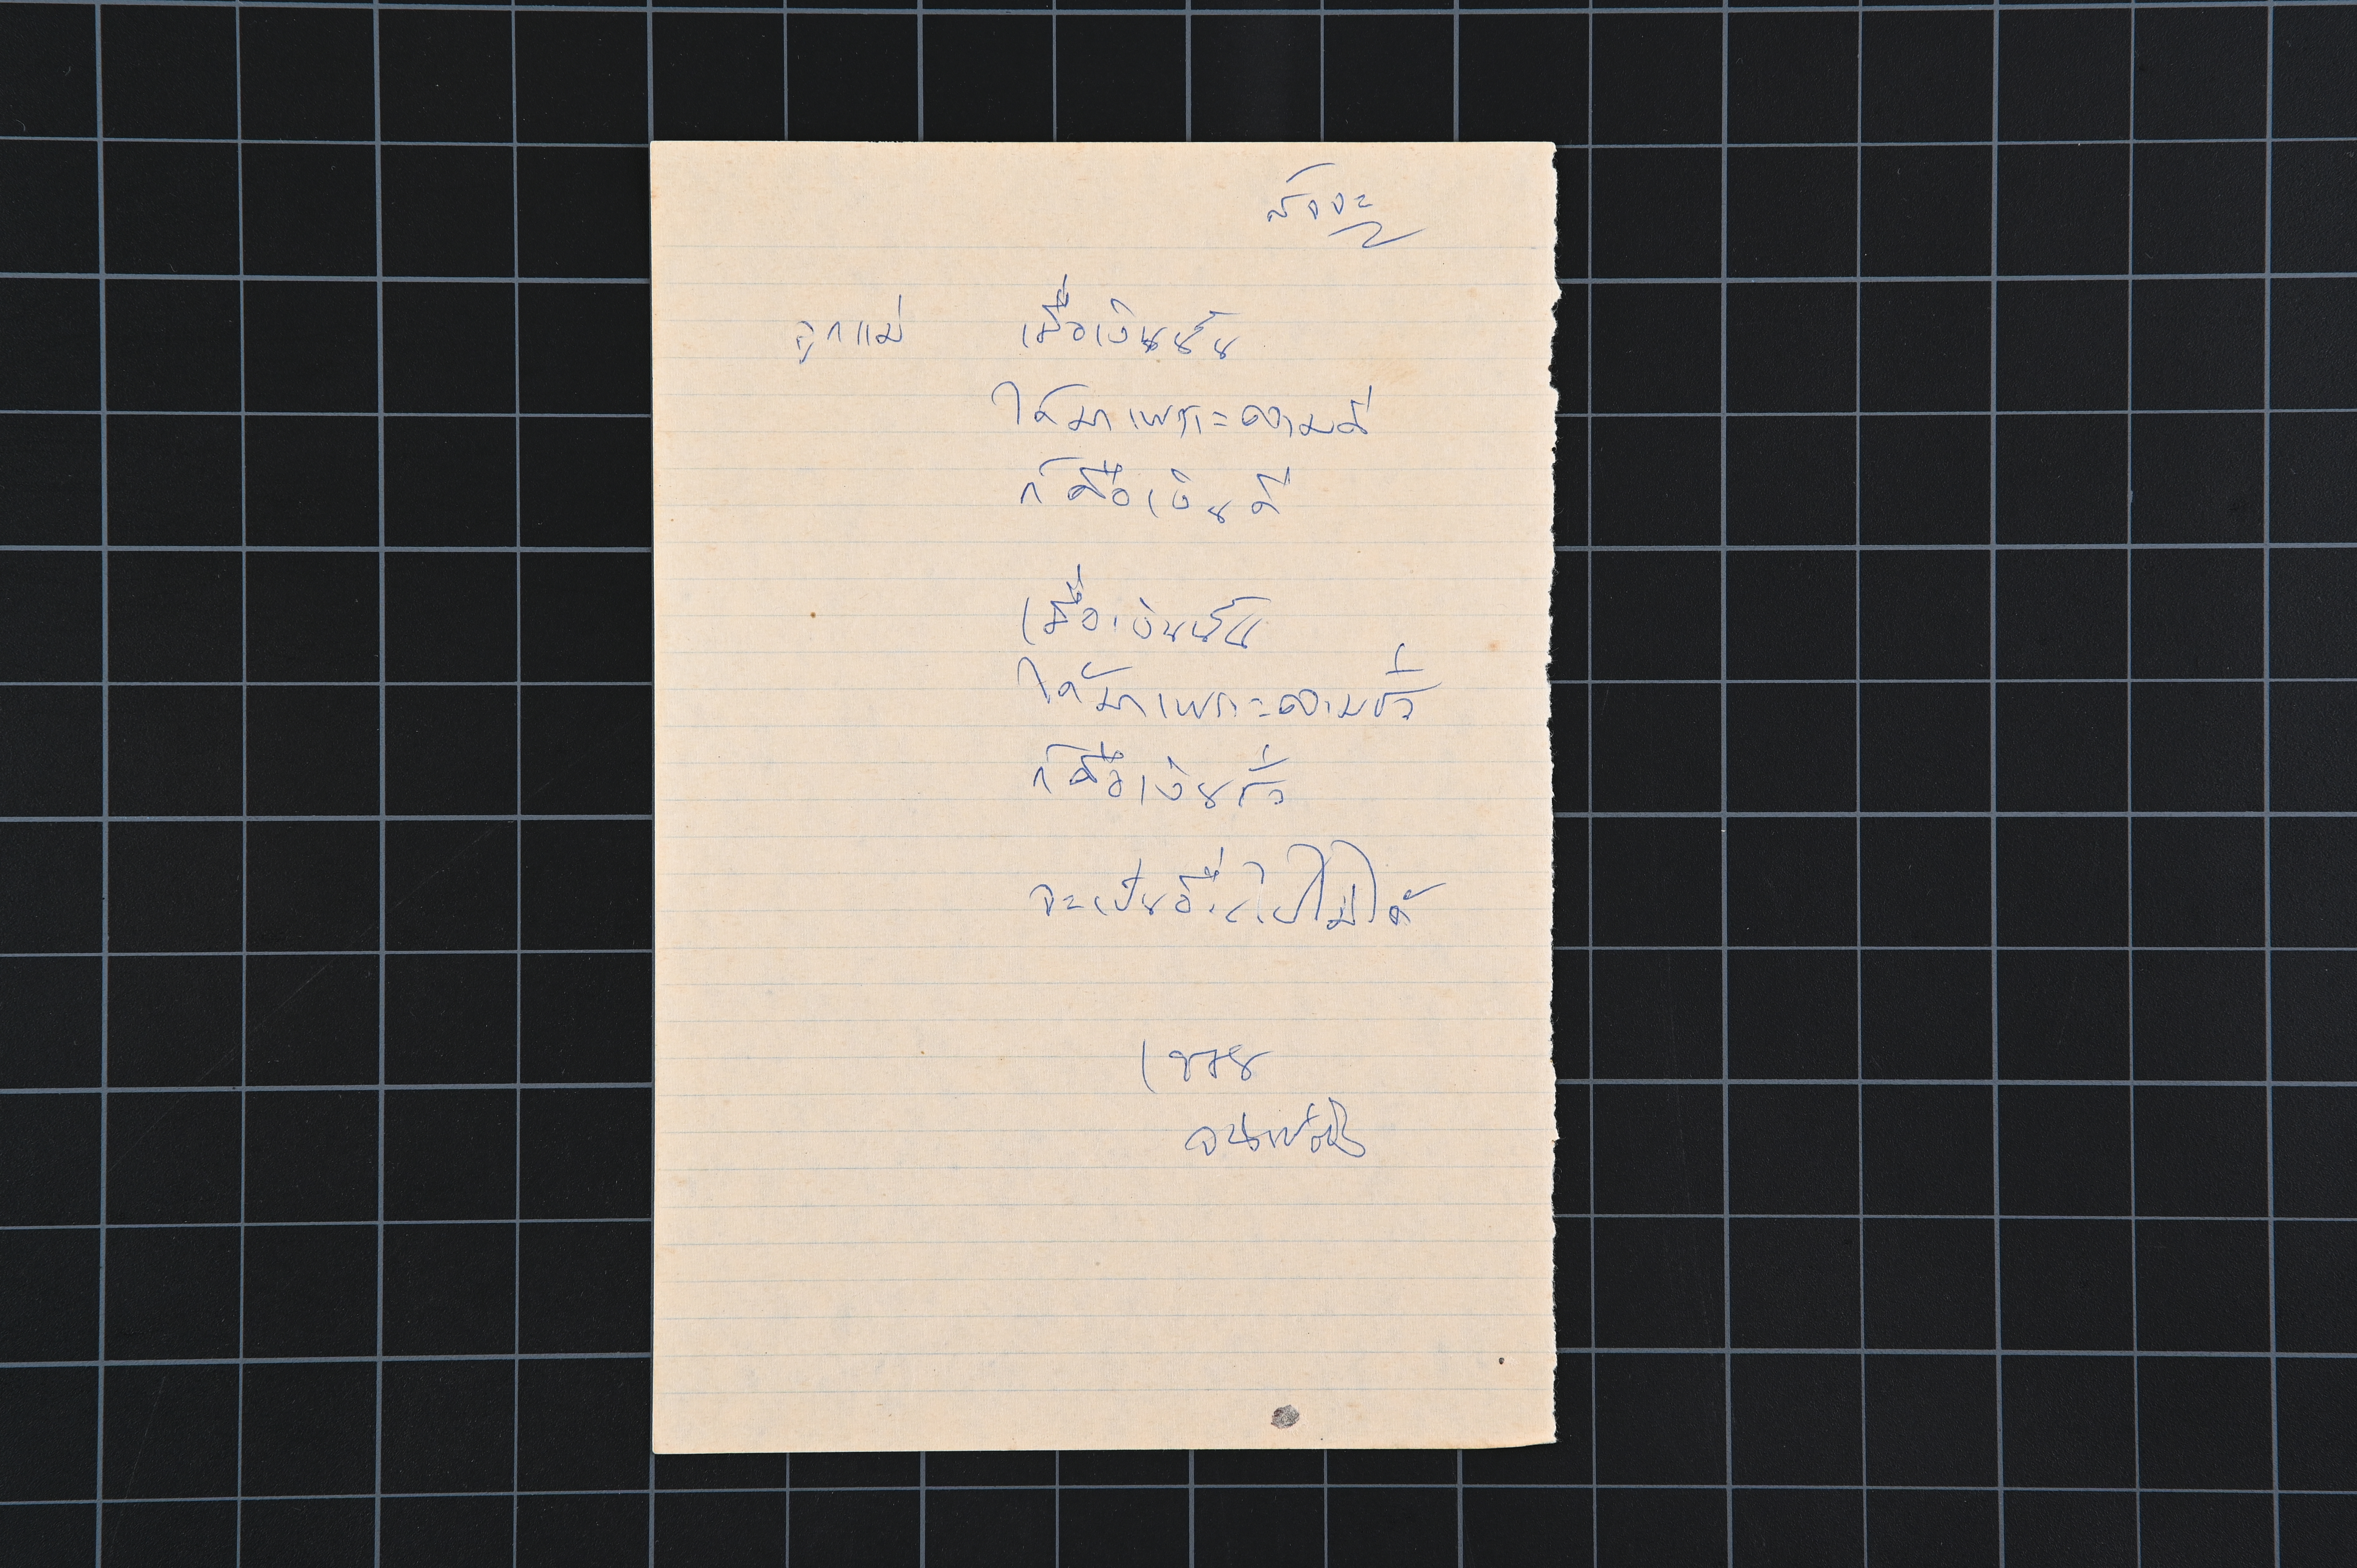 สัจจะ
ลูกแม่ เมื่อเงินนั้น
ได้มาเพราะความดี
ก็คือเงินดี
เมื่อเงินนั้น
ได้มาเพราะความชั่ว
ก็คือเงินชั่ว
จะเป็นอื่นไปไม่ได้
เขมานันทะ